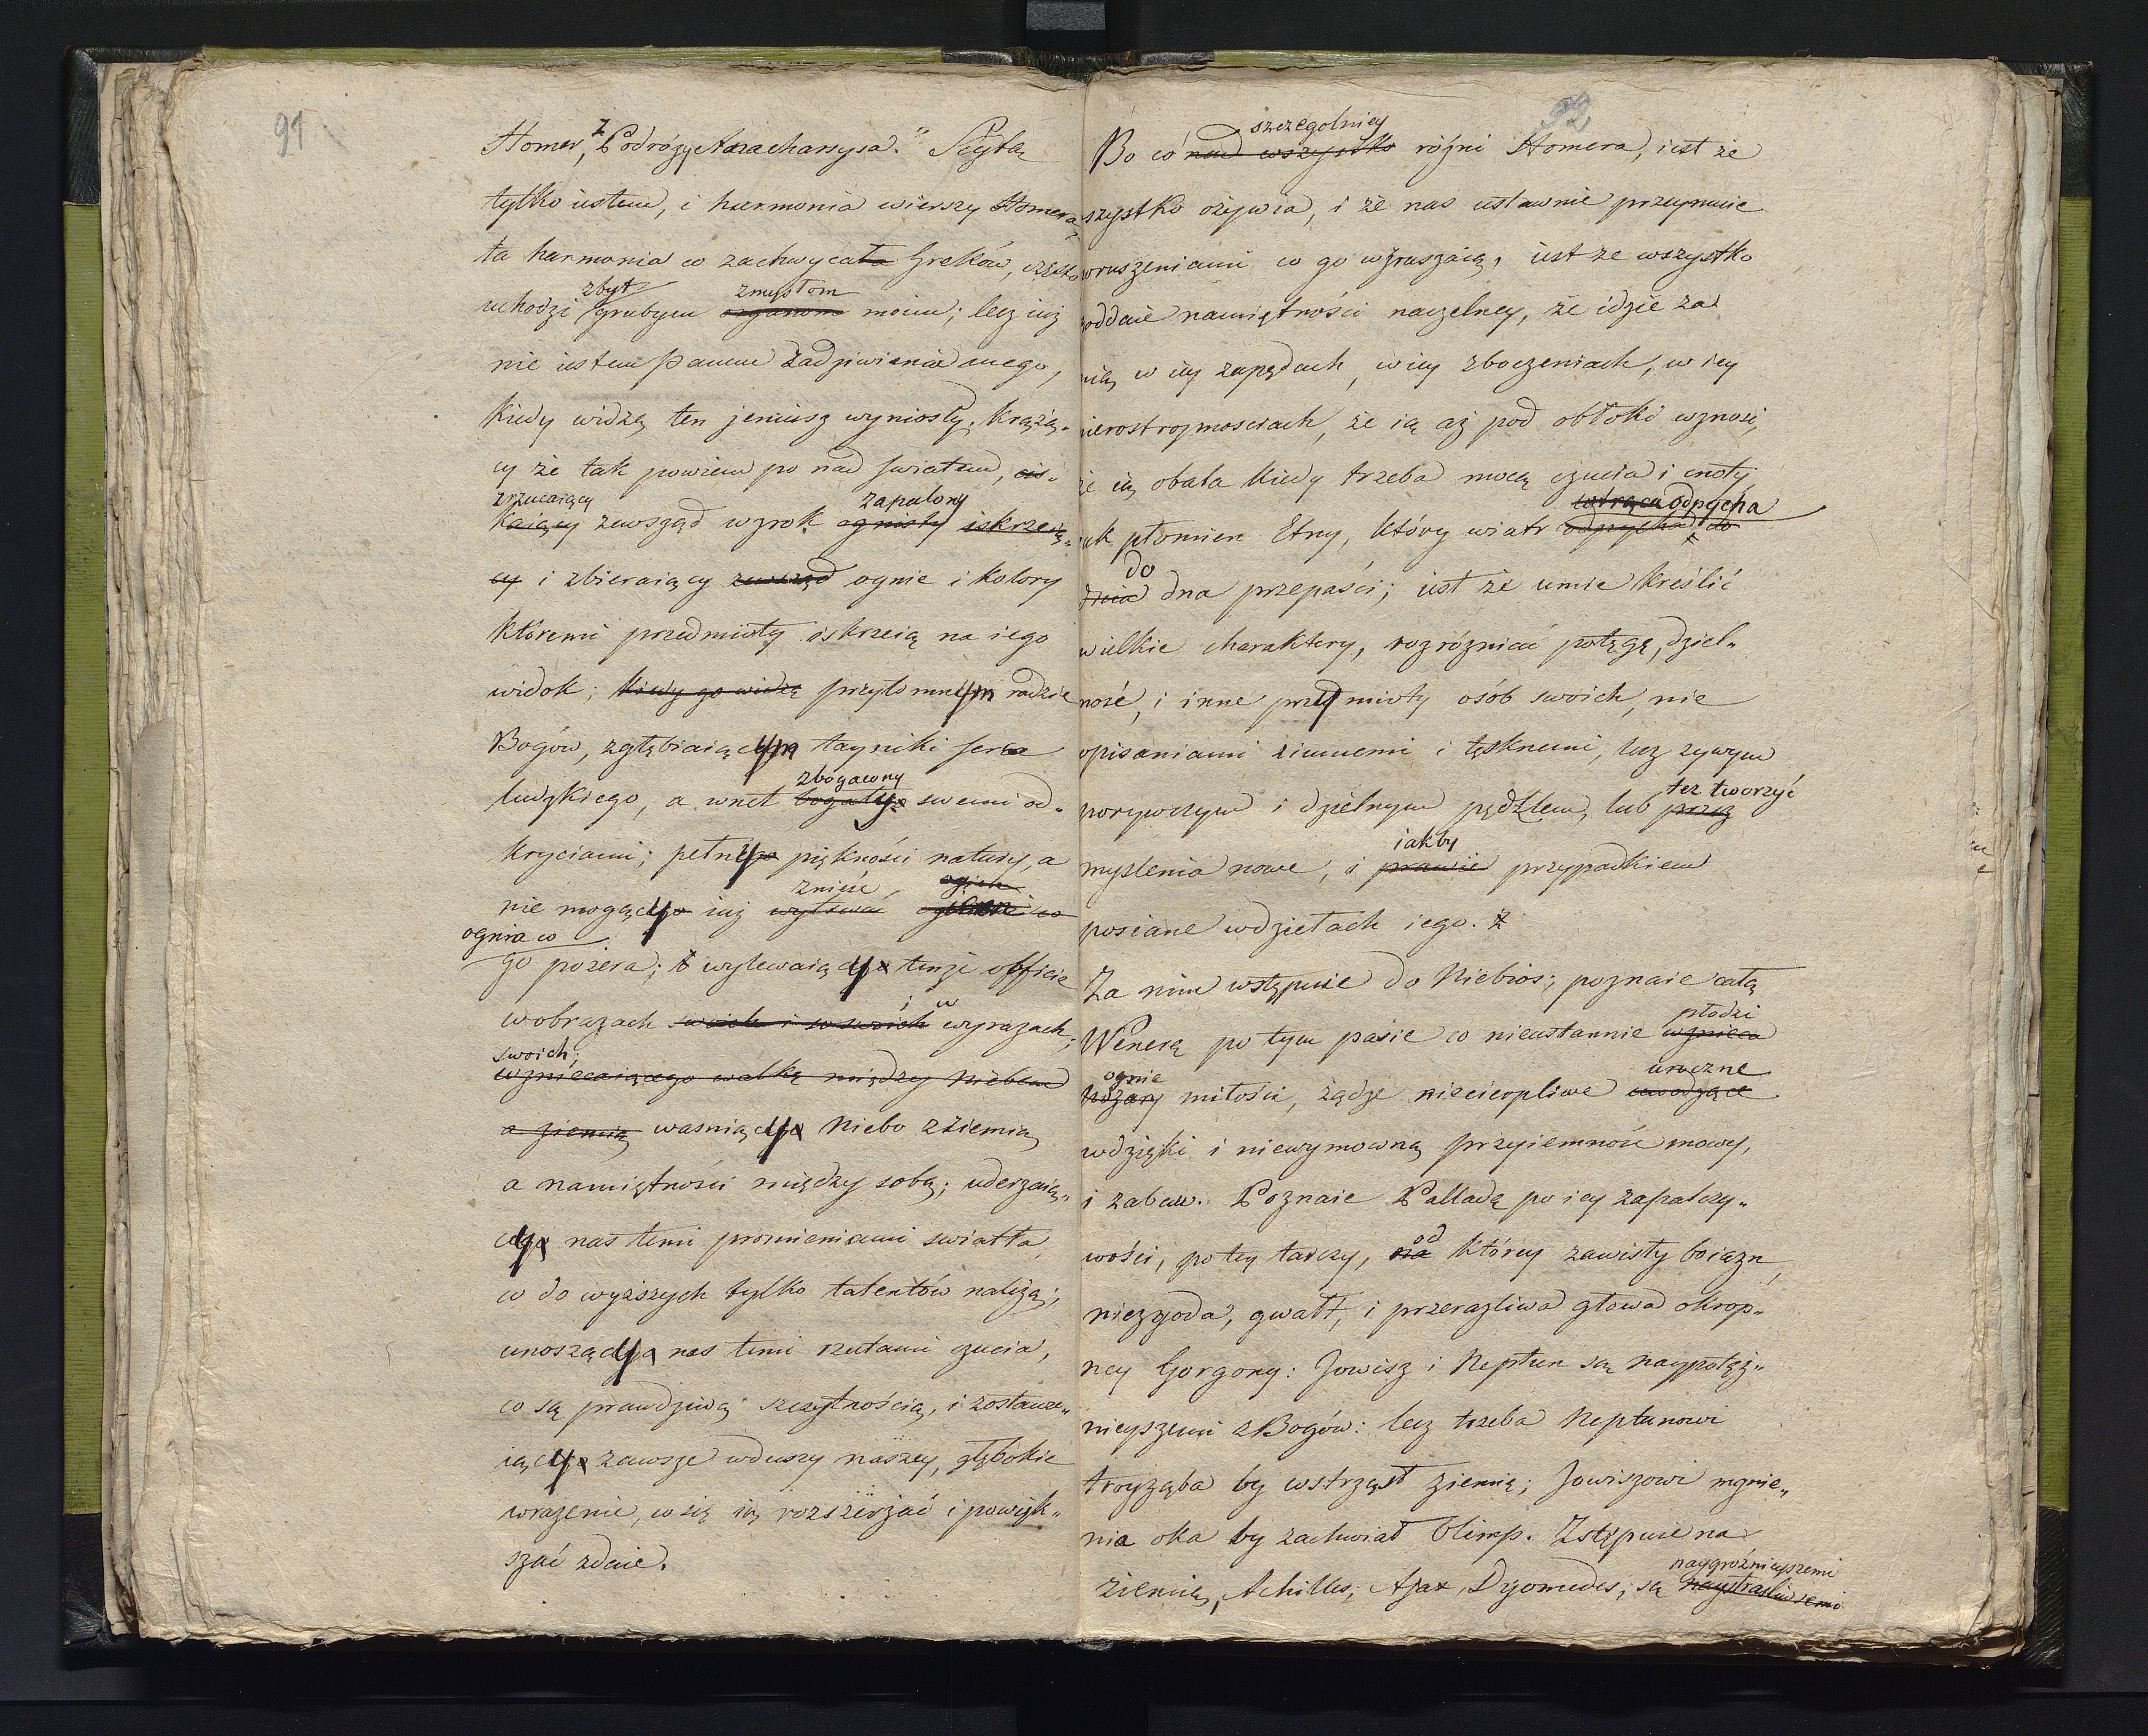 91
Homer, z "Podróży Anacharsysa." Scytą
tylko iestem, i harmonia wierszy Homera,
ta harmonia co zachwycała Greków, często
uchodzi zbyt grubym organom zmysłom moim; lecz iuż
nie iestem panem zadziwienia mego,
kiedy widzę ten jeniusz wyniosły, krążą„
cy że tak powiem po nad światem, cis„
kaiący zrzucaiący zewsząd wzrok ognisty zapalony iskrzeią„
cy i zbieraiący zewsząd ognie i kolory
któremi przedmioty iskrzeią na iego
widok; kiedy go widzę przytomnym radzie
Bogów, zgłębiaiącym tayniki serca
ludzkiego, a wnet bogaty zbogacony swemi od„
kryciami; pełny piękności natury, a
nie mogący iuż wytrwać znieść, ognia co
go pożera; wylewaiący tenże obficie
w obrazach swoich i w swoich i w wyrazach
swoich;
wzniecaiącego walkę między niebem
a ziemią waśniący Niebo z ziemią
a namiętności między sobą; uderzaią„
cy nas temi promieniami światła,
co do wyższych tylko talentów należą;
unoszący nas temi rzutami czucia,
co są prawdziwą szczytnością, i zostawu„
iący zawsze w duszy naszey, głębokie
wrażenie, co się ią rozszerzać i powięk„
szać zdaie.
92
Bo co nad wszystko szczególniey różni Homera, iest że
szystko ożywia, i że nas ustawnie przeymuie
wruszeniami co go wzruszaią, iest że wszystko
oddaie namiętności naczelney, że idzie za
nią, w iey zapędach, w iey zboczeniach, w iey
nierostropnościach, że ią aż pod obłoki wznosi,
że ią obala kiedy trzeba mocą czucia i cnoty
iak płomień Etny, który wiatr odpycha do wtrąca odpycha
dnia do dna przepaści; iest że umie kreślić
wielkie charaktery, rozróżniać potęgę, dziel„
ność, i inne przymioty osób swoich, nie
opisaniami zimnemi i tęsknemi, lecz żywym
porywczym i dzielnym pędzlem, lub przez też tworzyć
myslenia nowe, i prawie iakby przypadkiem
posiane w dziełach iego.
Za nim wstępuie do Niebios; poznaie całą
Wenerę po tym pasie co nieustannie wznieca płodzi
pożary ognie miłości, żądze niecierpliwe uwodzące uroczne
wdzięki i niewymowną przyiemność mowy,
i zabaw. Poznaie Palladę po iey zapalczy„
wości, po tey tarczy, na od którey zawisły boiązn,
niezgoda, gwałt, i przeraźliwa głowa okrop„
ney Gorgony: Jowisz i Neptun są naypotęż„
nieyszemi z Bogów: lecz trzeba Neptunowi
troyzęba by wstrząsł ziemię; Jowiszowi mgnie„
nia oka by zachwiał Olimp. Zstępuie na
ziemię, Achilles, Ajax, Dyomedes, są naystraszliwszemi naygroźnieyszemi